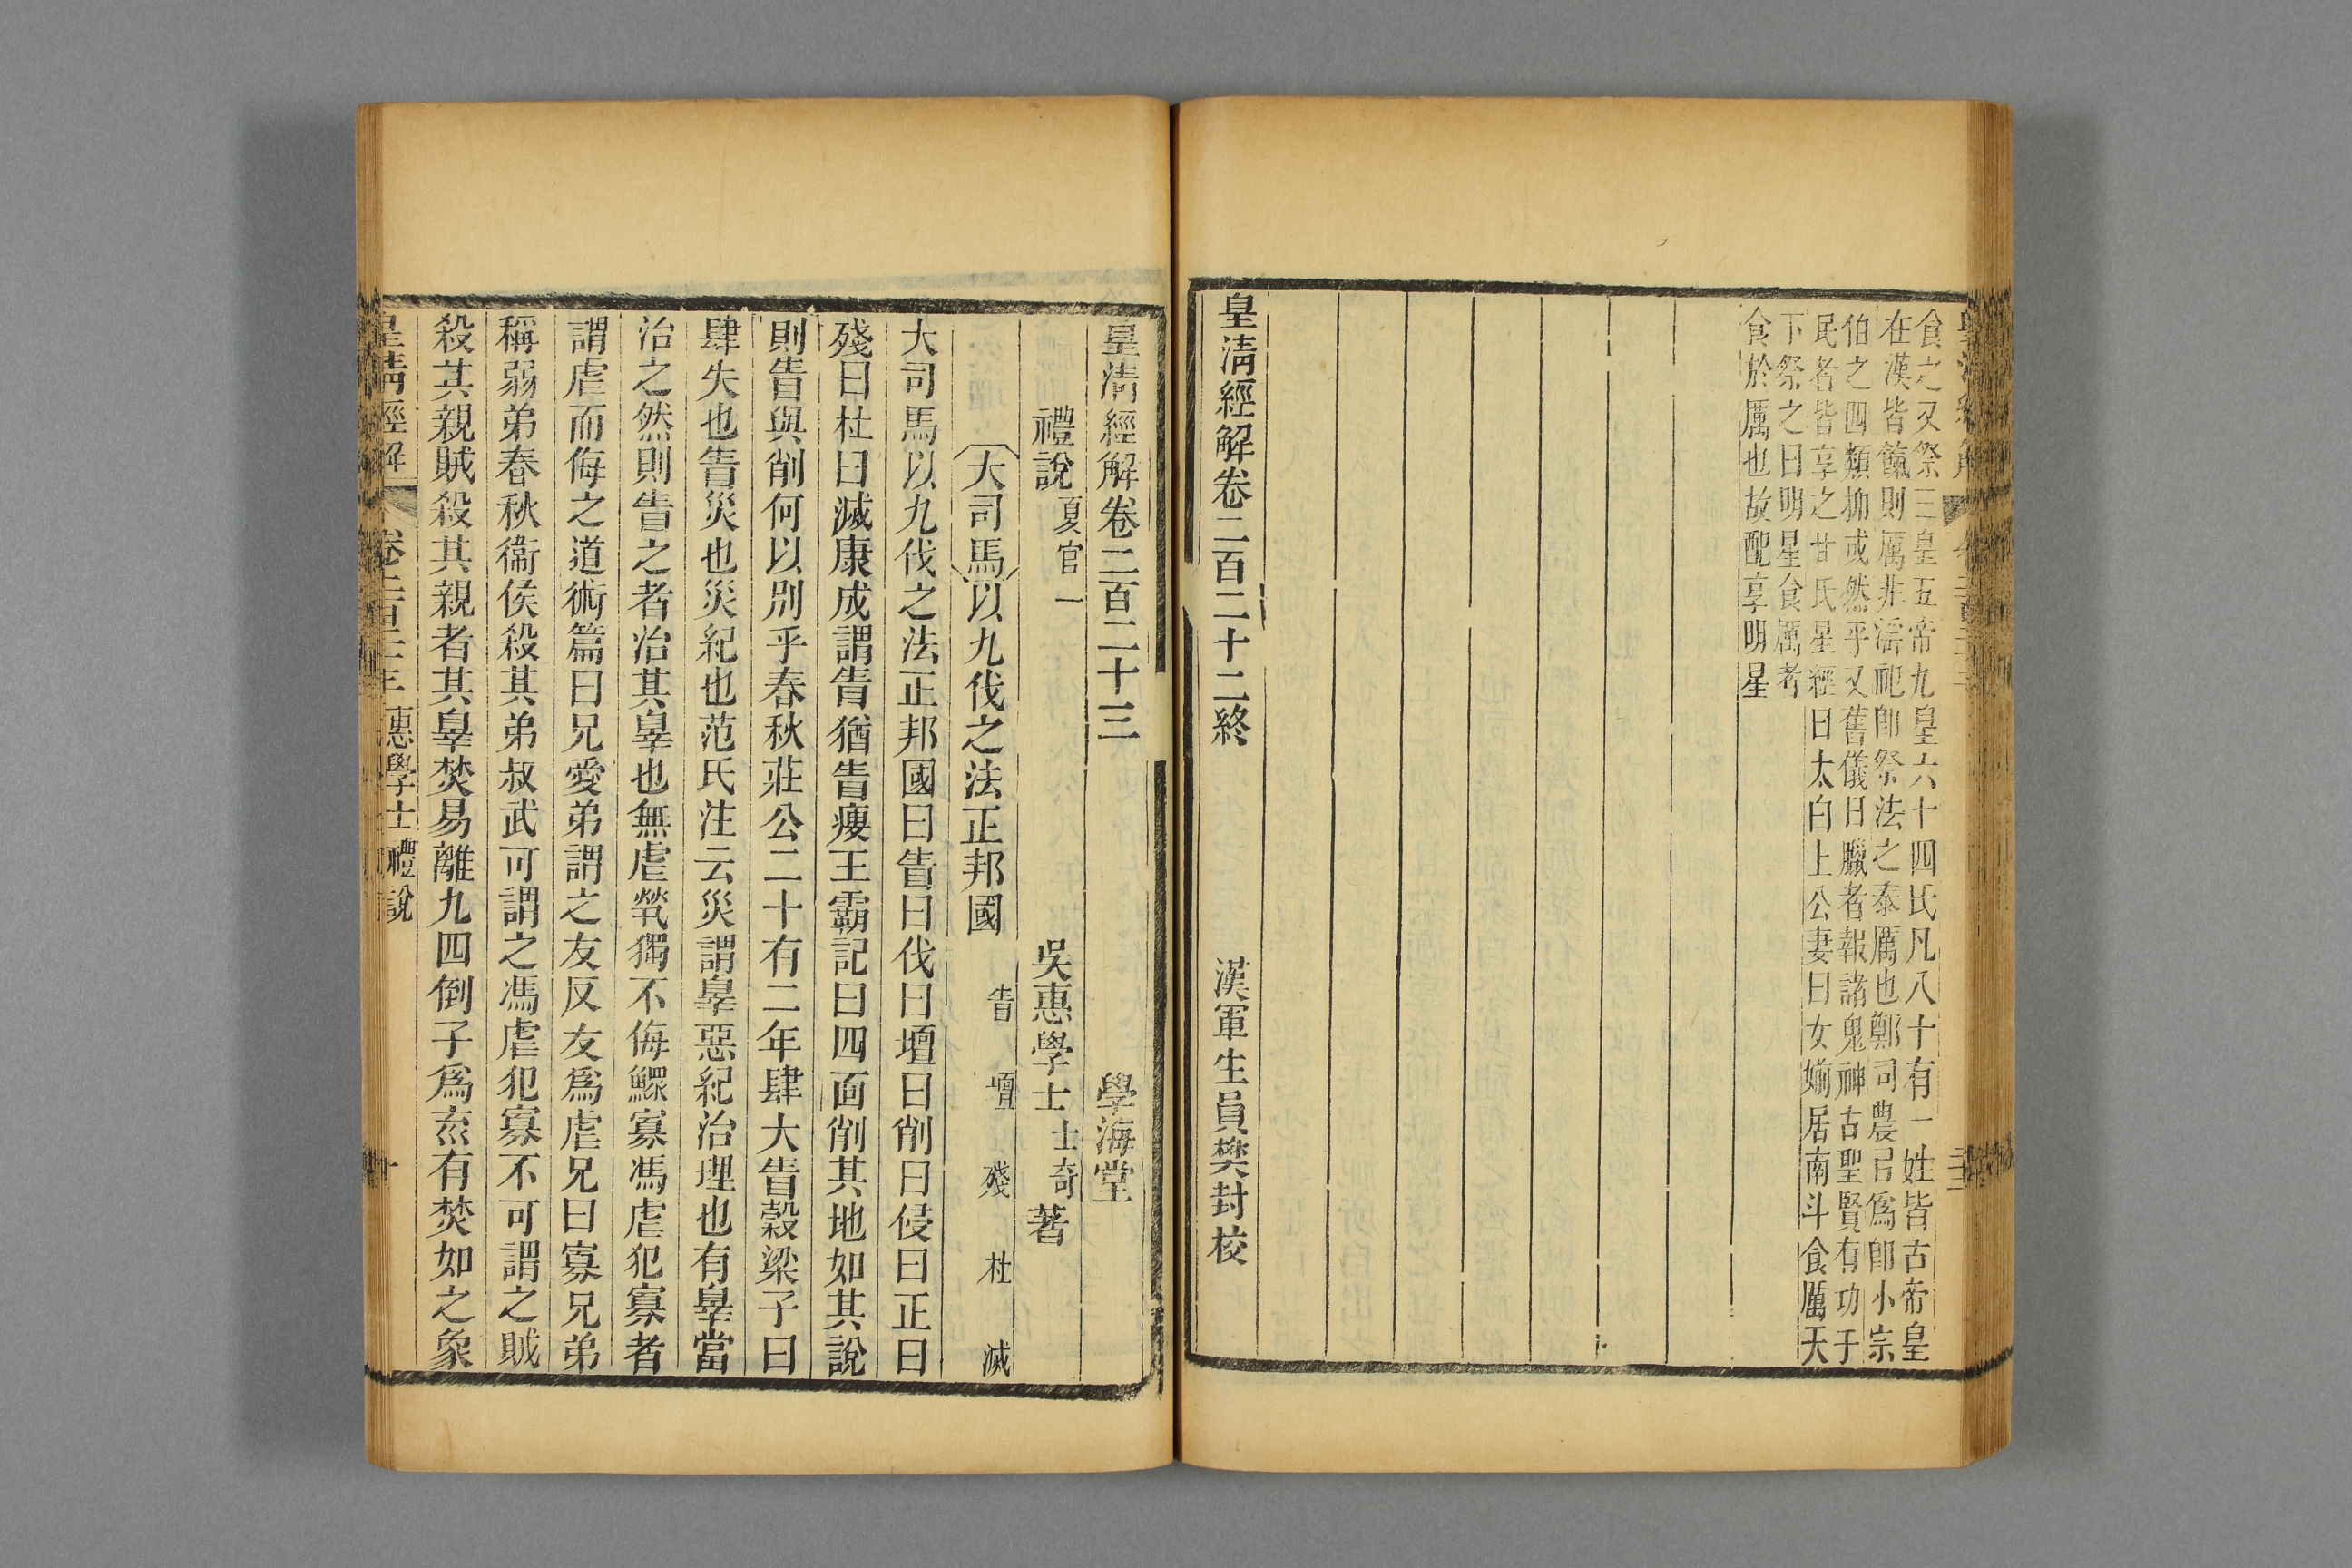 食之又祭三皇五帝九皇六十四氏凡八十有一姓皆古帝皇
在漢皆饩則厲非淫祀卽祭法之泰厲也鄭司農㠯爲卽小宗
伯之四類抑或然乎又舊儀曰臘者報諸鬼神古聖賢有功于
民者皆享之甘氏星經曰太白上公妻曰女媊居南斗食厲天
下祭之曰明星食厲者
食於厲也故配享明星
皇清經解卷二百二十二終 漢軍生員樊封校
皇清經解卷二百二十三 學海堂
禮說 夏官一 吳惠學士士奇著
大司馬以九伐之法正邦國 眚 壇 殘 杜 滅
大司馬以九伐之法正邦國曰眚曰伐曰壇曰削曰侵曰正曰
殘曰杜曰滅康成謂眚猶眚瘦王霸記曰四面削其地如其說
則眚與削何以別乎春秋莊公二十有二年肆大眚穀梁子曰
肆失也眚災也災紀也范氏注云災謂辠惡紀治理也有辠當
治之然則眚之者治其辠也無虐煢獨不侮鰥寡馮虐犯寡者
謂虐而侮之道術篇曰兄愛弟謂之友反友爲虐兄曰寡兄弟
稱弱弟春秋衞侯殺其弟叔武可謂之馮虐犯寡不可謂之賊
殺其親賊殺其親者其辠焚易離九四倒子爲𠫓有焚如之象
皇清經解 卷二百二十三 惠學士禮說